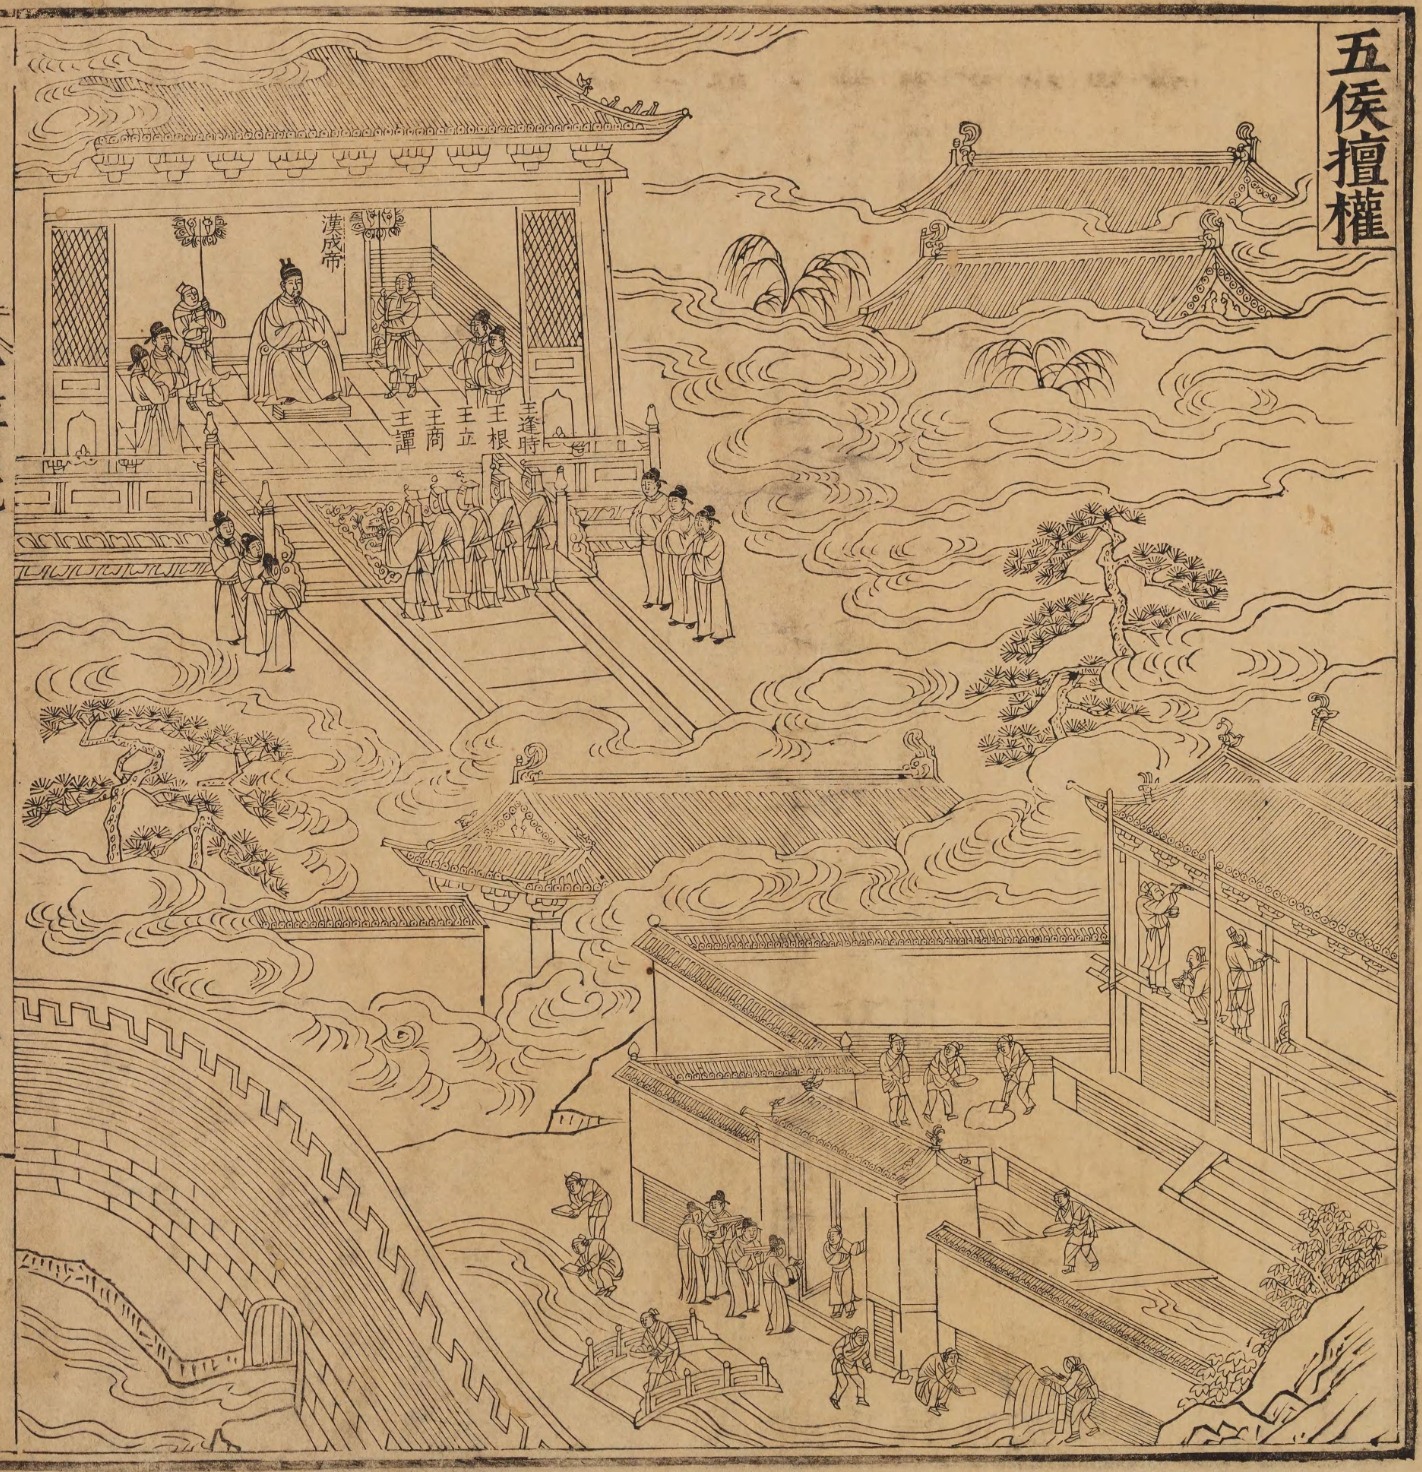 五侯擅權
漢成帝
王逢時
王根
王立
王商
王譚